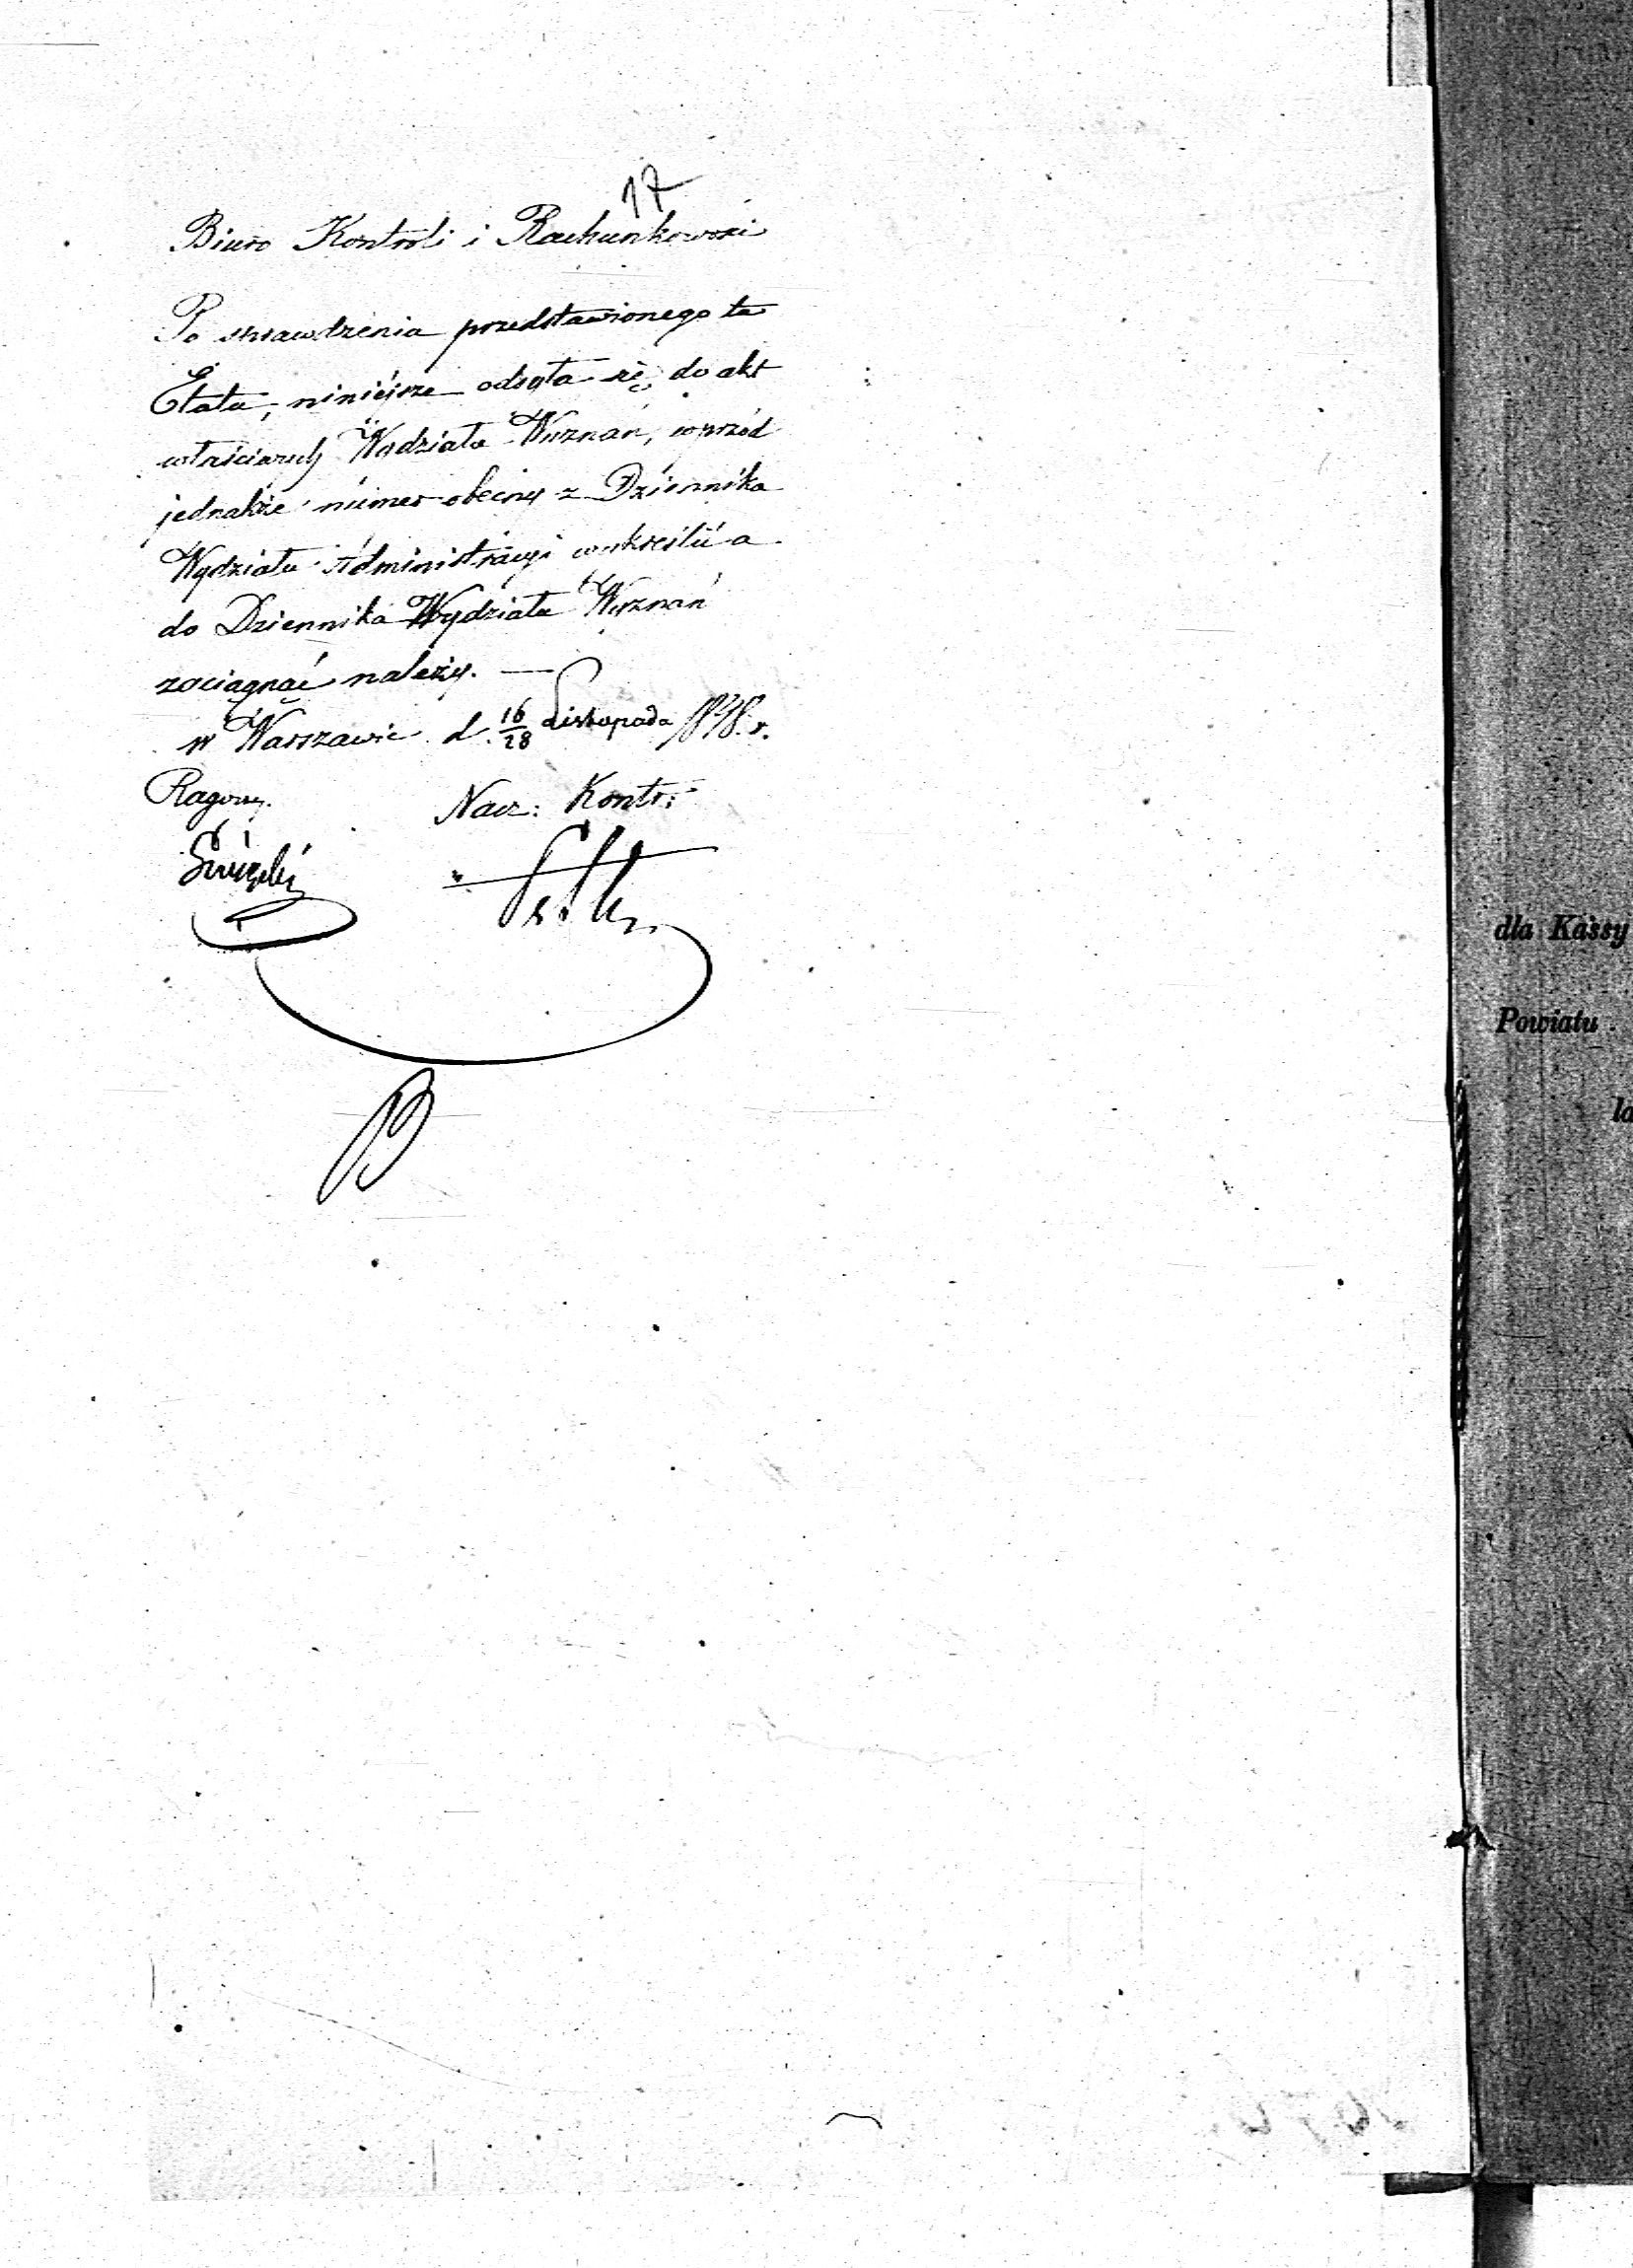 17
Biuro Kontroli i Rachunkowości
Po sprawdzeniu przedstawionego tu
Etatu, niniejsze odsyła się do akt
właściwych Wydziału Wyznań, wprzód
jednakże numer obecny z Dziennika
Wydziału Administracyi wykreślić a
do Dziennika Wydziału Wyznań
zaciągnąć należy. —
w Warszawie d. 16/28 Listopada 1848 r.
Nacz: Kontr:
dla Kassy
Powiatu